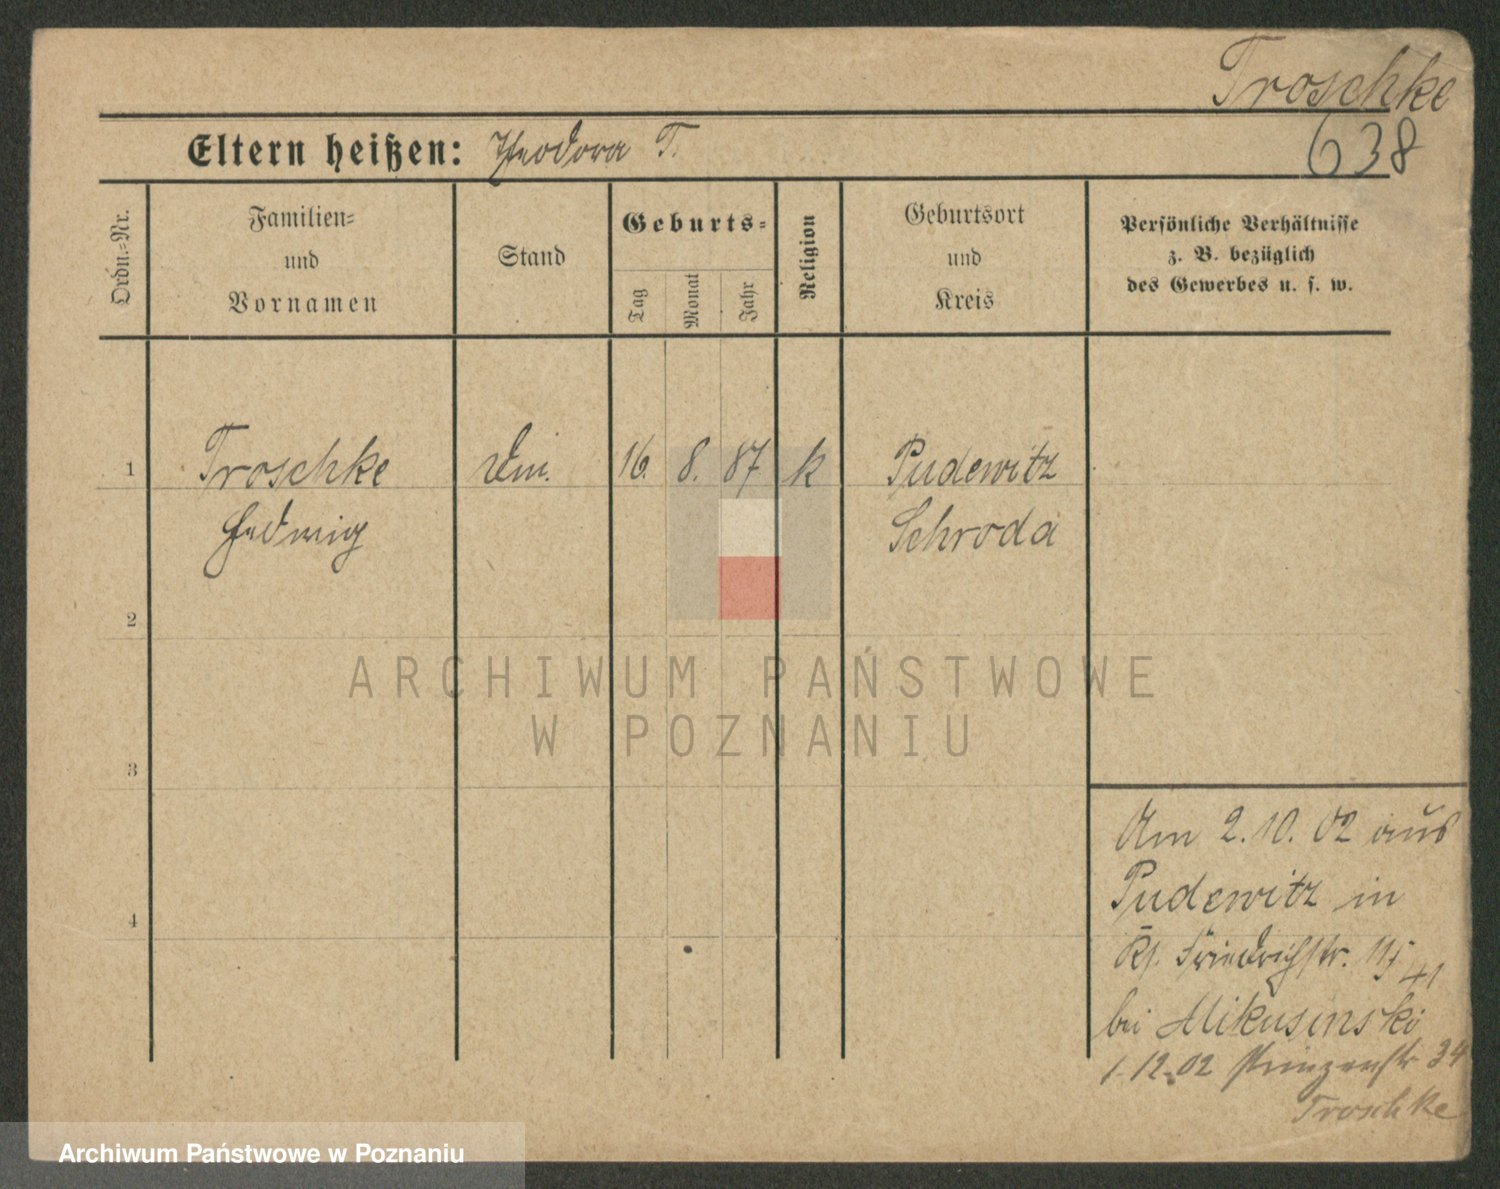 Troschke
638
Eltern heißen: Theodora T.
Ordn.=Nr.
Familien=
und
Vornamen
Stand
Geburts=
Tag
Monat
Jahr
Religion
Geburtsort
und
Kreis
Persönliche Verhältnisse
z. B. bezüglich
des Gewerbes u. s. w.
1 Troschke 16. 8. 87 k Pudewitz
Hedwig Schroda
2
3
4
Am 2.10.02 aus
Pudewitz in
Friedrichstr. 115
bei Mikusinski
1.12.02 Prinzenstr 34
Troschke
ARCHIWUM PAŃSTWOWE
W POZNANIU
Archiwum Państwowe w Poznaniu